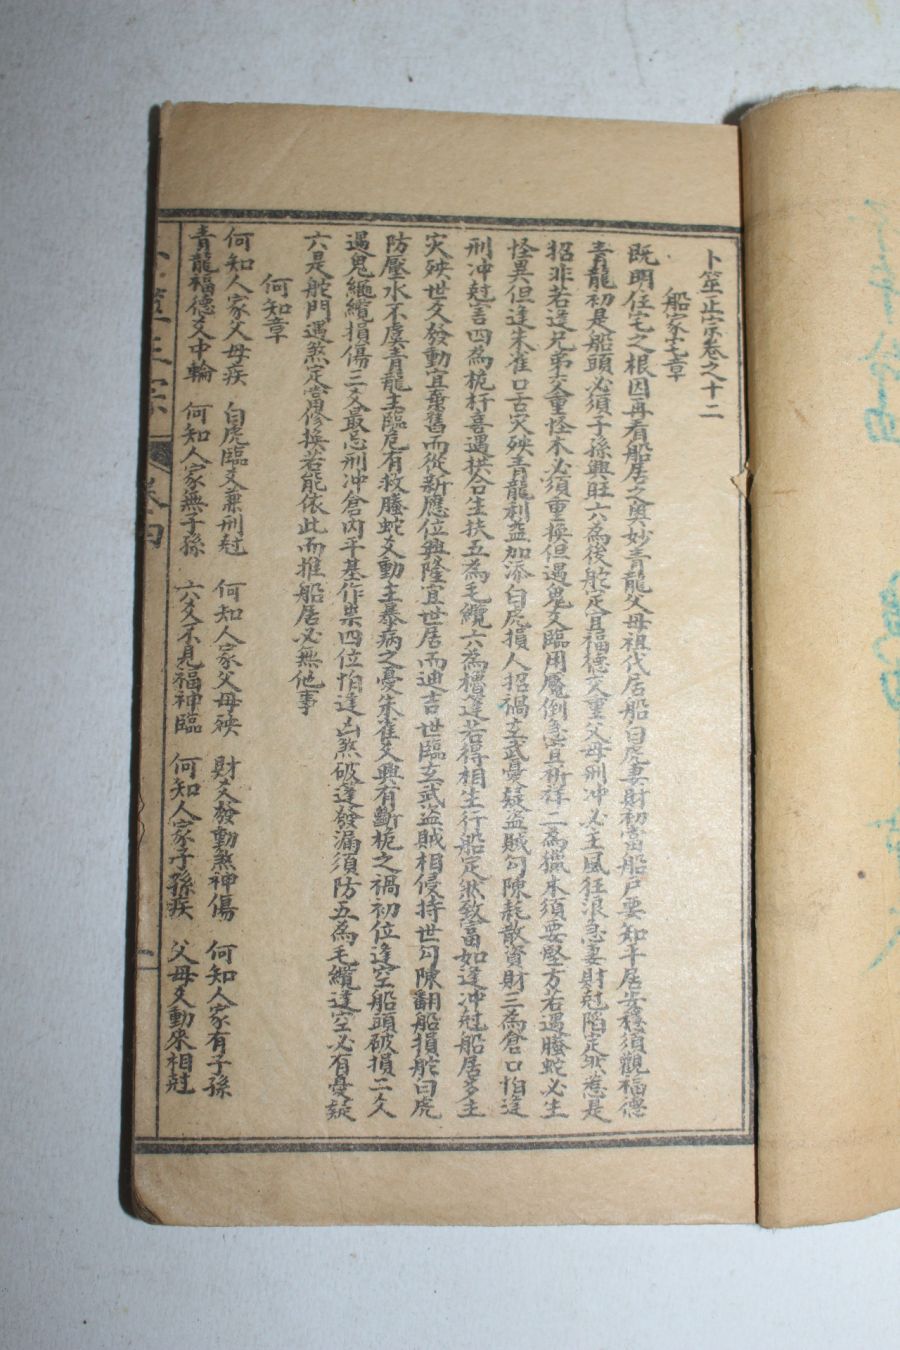 卜筮正宗卷之十二
船家宅章
既明住宅之根因再看船居之奧妙青龍父母祖代居船白虎妻財初當船戶要知平居安穩須觀福德
青龍初是船頭必須子孫興旺六為後舵定宜福德爻重父母刑冲必主風狂浪急妻財尅陷定然惹是
招非若逢兄弟交重怪木必須重換但遇鬼爻臨用魘倒急宜祈祥二為獵木須要堅方若遇螣蛇必生
怪異但逢朱雀口舌灾殃青龍利益加添白虎損人招禍玄武憂疑盜賊勾陳耗散資財三為倉口怕逢
刑冲尅害四為桅杆喜遇拱合生扶五為毛纜六為櫓逢若得相生行船定然致富如逢冲尅船居多主
灾殃世爻發動宜棄舊而從新應位興隆宜世居而迪吉世臨玄武盜賊相侵持世勾陳翻船損舵白虎
防壓水不虞青龍主臨危有救螣蛇爻動主暴病之憂朱雀爻興有斷桅之禍初位逢空船頭破損二爻
遇鬼繩纜損傷三爻最忌刑冲倉內平基作祟四位怕逢凶煞破蓬發漏須防五為毛纜逢空必有憂疑
六是舵門遇煞定當修換若能依此而推船居必無他事
何知章
何知人家父母疾 白虎臨爻兼刑尅 何知人家父母殃 財爻發動煞神傷 何知人家有子孫
青龍福德爻中輪 何知人家無子孫 六爻不見福神臨 何知人家子孫疾 父母爻動來相尅